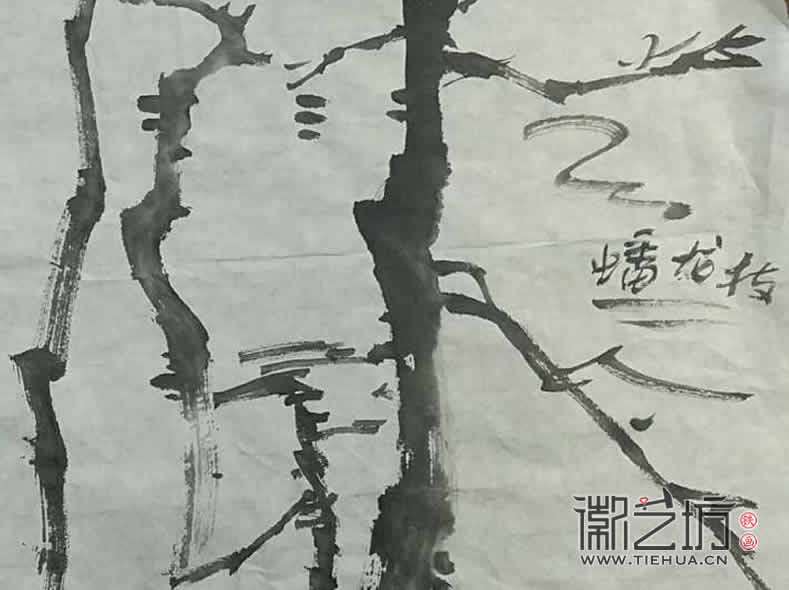 蟠龙枝
徽艺坊
铁画
WWW.TIEHUA.CN